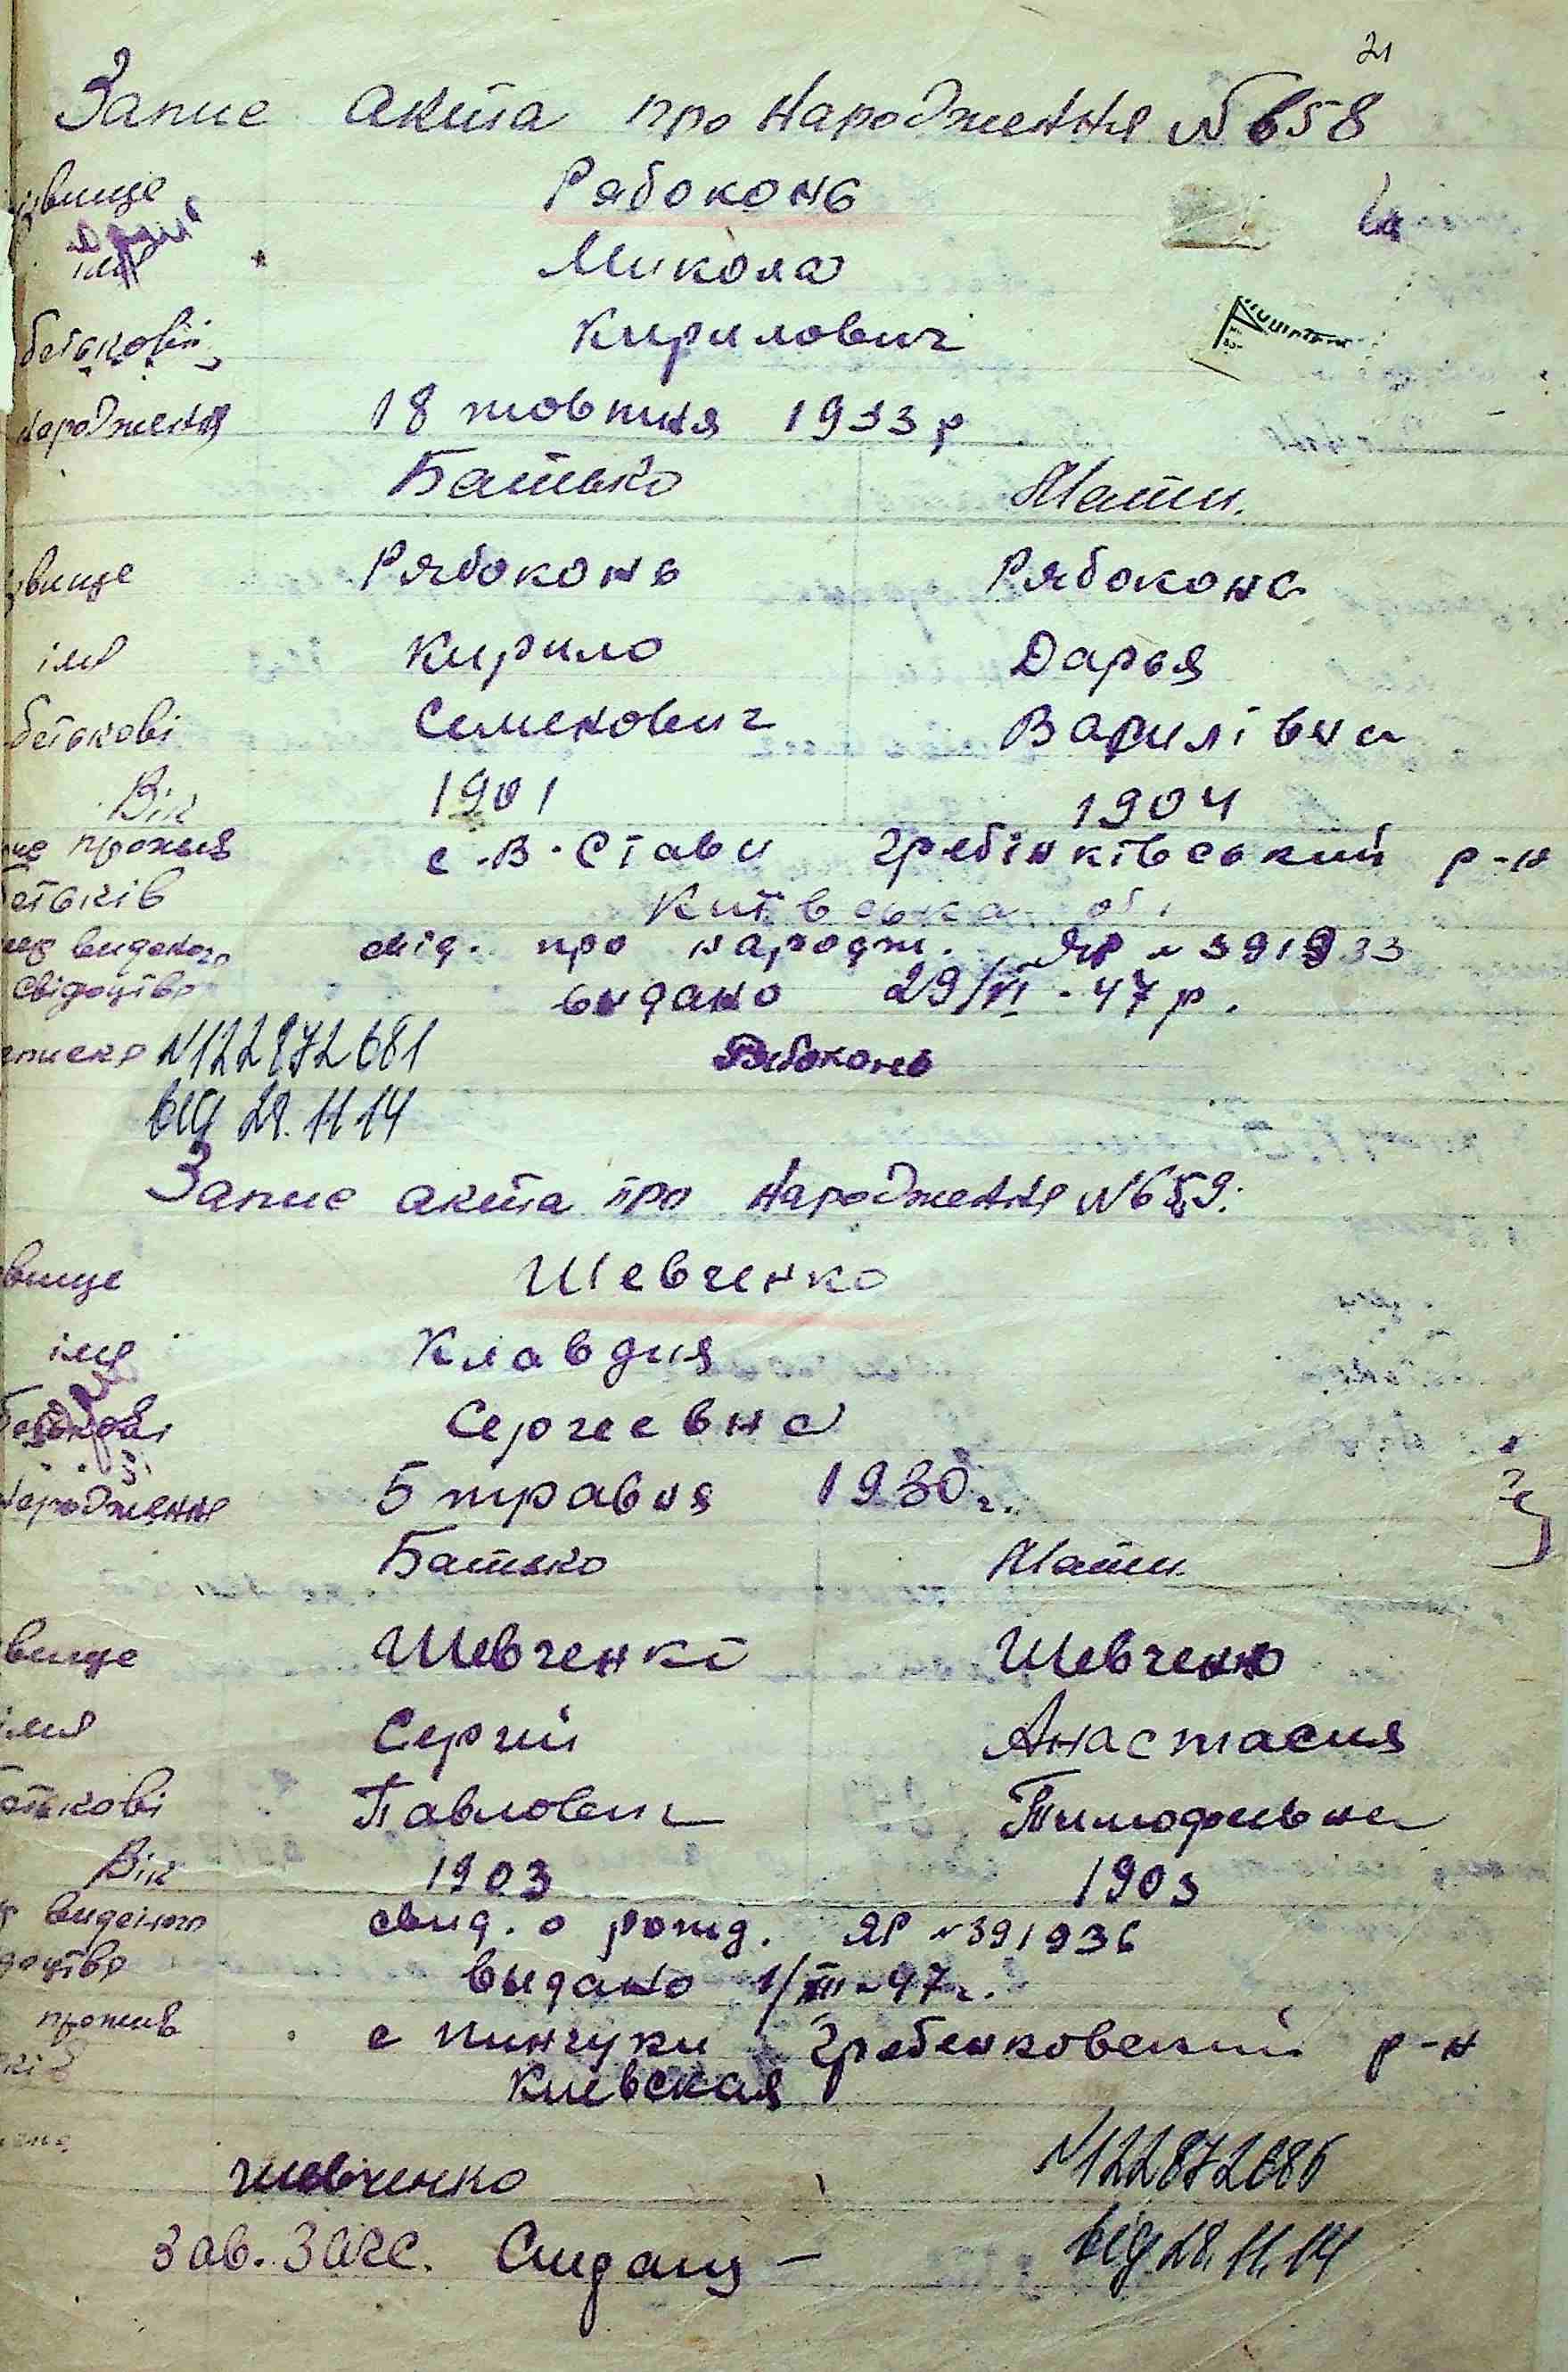 21
Запис акта про народження № 658
звище Рябоконь
імя Микола
батькові Кирилович
народження 18 жовтня 1933 р
Батько Мати.
звище Рябоконь Рябоконь
імя Кирило Дарья
батькові Семенович Василівна
Вік 1901 1904
прожив с. В. Стави Гребінківський р-н
батьків Київська об
виданого свід. про народж. ЯР № 391933
свідоцтва видано 29/VI - 47 р.
№122872681 Рябоконь
від 28.11.14
Запис акта про народження № 659.
вище Шевченко
імя Клавдия
Сергеевна
народження 5 травня 1930 г.
Батько Мати.
вище Шевченко Шевченко
імя Сергий Анастасия
батькові Павлович Тимофиевна
Вік 1903 1903
виданого свид. о рожд. ЯР № 391936
доцтва выдано 1/VII - 47 г.
прожив с Пинчуки Гребенковский р-н
ків Киевская
Шевченко №122872686
Зав. Загс. від 28.11.14